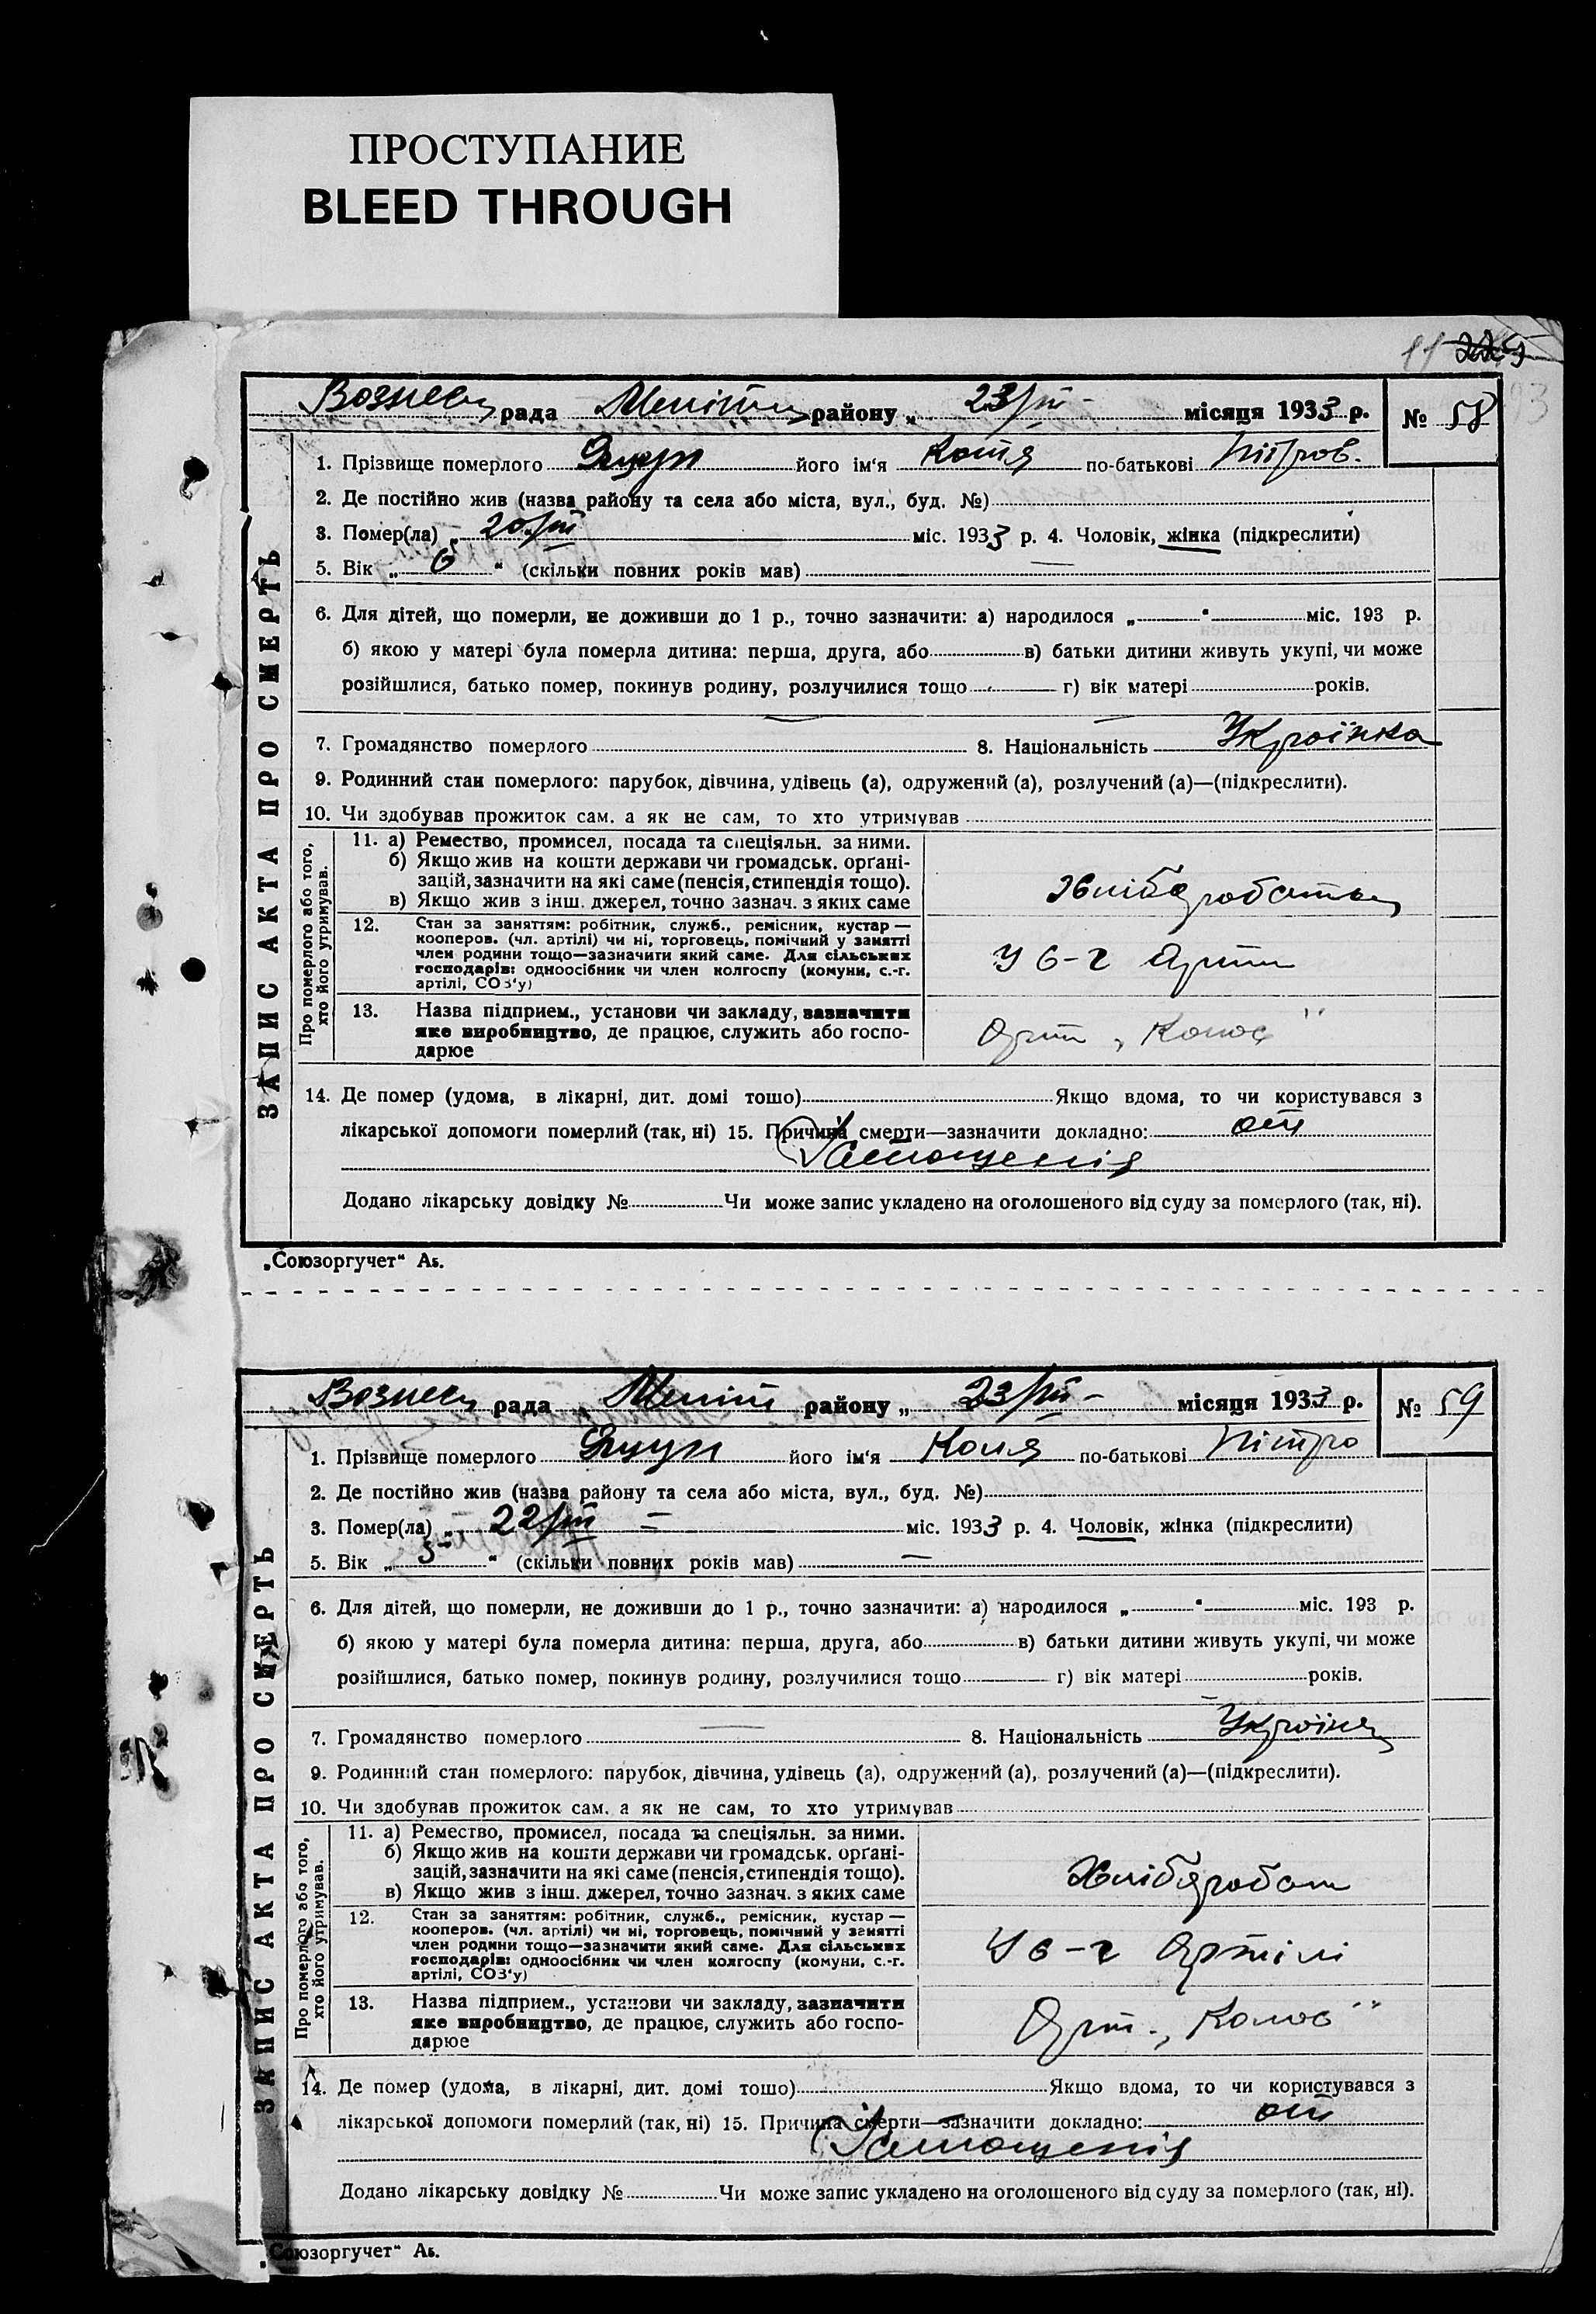 ПРОСТУПАНИЕ
BLEED THROUGH
11 229
93
Вознесен рада Меліт району „ 23/III - місяця 1933 р. № 58
1. Прізвище померлого Ящун його ім‘я Катя по-батькові Пітров.
2. Де постійно жив (назва району та села або міста, вул., буд. №)
3. Помер(ла) „ 20/III міс. 1933 р. 4. Чоловік, жінка (підкреслити)
5. Вік „ 6 “ (скільки повних років мав) —
6. Для дітей, що померли, не доживши до 1 р., точно зазначити: а) народилося „ “ міс. 193 р.
б) якою у матері була померла дитина: перша, друга, або в) батьки дитини живуть укупі, чи може
розійшлися, батько помер, покинув родину, розлучилися тощо г) вік матері років.
7. Громадянство померлого 8. Національність Українка
9. Родинний стан померлого: парубок, дівчина, удівець (а), одружений (а), розлучений (а)—(підкреслити).
10. Чи здобував прожиток сам, а як не сам, то хто утримував
ЗАПИС АКТА ПРО СМЕРТЬ
Про померлого або того, хто його утримував.
11. а) Ремество, промисел, посада та спеціяльн. за ними.
б) Якщо жив на кошти держави чи громадськ. орґані-
зацій, зазначити на які саме (пенсія, стипендія тощо).
в) Якщо жив з інш. джерел, точно зазнач. з яких саме
12. Стан за заняттям: робітник, служб., ремісник, кустар—
кооперов. (чл. артілі) чи ні, торговець, помічний у занятті
член родини тощо—зазначити який саме. Для сільських
господарів: одноосібник чи член колгоспу (комуни, с.-г.
артілі, СОЗ‘у)
У с-г Арті
13. Назва підприєм., установи чи закладу, зазначити
яке виробництво, де працює, служить або госпо-
дарює
Арті „Колос"
14. Де помер (удома, в лікарні, дит. домі тощо) Якщо вдома, то чи користувався з
лікарської допомоги померлий (так, ні) 15. Причина смерти—зазначити докладно: от
істощенія
Додано лікарську довідку № Чи може запис укладено на оголошеного від суду за померлого (так, ні).
„Союзоргучет“ А5.
Вознесен рада Меліт району „ 23/III - місяця 1933 р. № 59
1. Прізвище померлого Ящун його ім‘я Коля по-батькові Пітро
2. Де постійно жив (назва району та села або міста, вул., буд. №)
3. Помер(ла) „ 22/III — міс. 1933 р. 4. Чоловік, жінка (підкреслити)
5. Вік „ 3 “ (скільки повних років мав) —
6. Для дітей, що померли, не доживши до 1 р., точно зазначити: а) народилося „ “ міс. 193 р.
б) якою у матері була померла дитина: перша, друга, або в) батьки дитини живуть укупі, чи може
розійшлися, батько помер, покинув родину, розлучилися тощо г) вік матері років.
7. Громадянство померлого — 8. Національність Україн
9. Родинний стан померлого: парубок, дівчина, удівець (а), одружений (а), розлучений (а)—(підкреслити).
10. Чи здобував прожиток сам, а як не сам, то хто утримував
ЗАПИС АКТА ПРО СМЕРТЬ
Про померлого або того, хто його утримував.
11. а) Ремество, промисел, посада та спеціяльн. за ними.
б) Якщо жив на кошти держави чи громадськ. орґані-
зацій, зазначити на які саме (пенсія, стипендія тощо).
в) Якщо жив з інш. джерел, точно зазнач. з яких саме
Хлібороб
12. Стан за заняттям: робітник, служб., ремісник, кустар—
кооперов. (чл. артілі) чи ні, торговець, помічний у занятті
член родини тощо—зазначити який саме. Для сільських
господарів: одноосібник чи член колгоспу (комуни, с.-г.
артілі, СОЗ‘у)
У с-г Артілі
13. Назва підприєм., установи чи закладу, зазначити
яке виробництво, де працює, служить або госпо-
дарює
Арт. „Колос"
14. Де помер (удома, в лікарні, дит. домі тощо) Якщо вдома, то чи користувався з
лікарської допомоги померлий (так, ні) 15. Причина смерти—зазначити докладно: от
істощенія
Додано лікарську довідку № Чи може запис укладено на оголошеного від суду за померлого (так, ні).
„Союзоргучет“ А5.